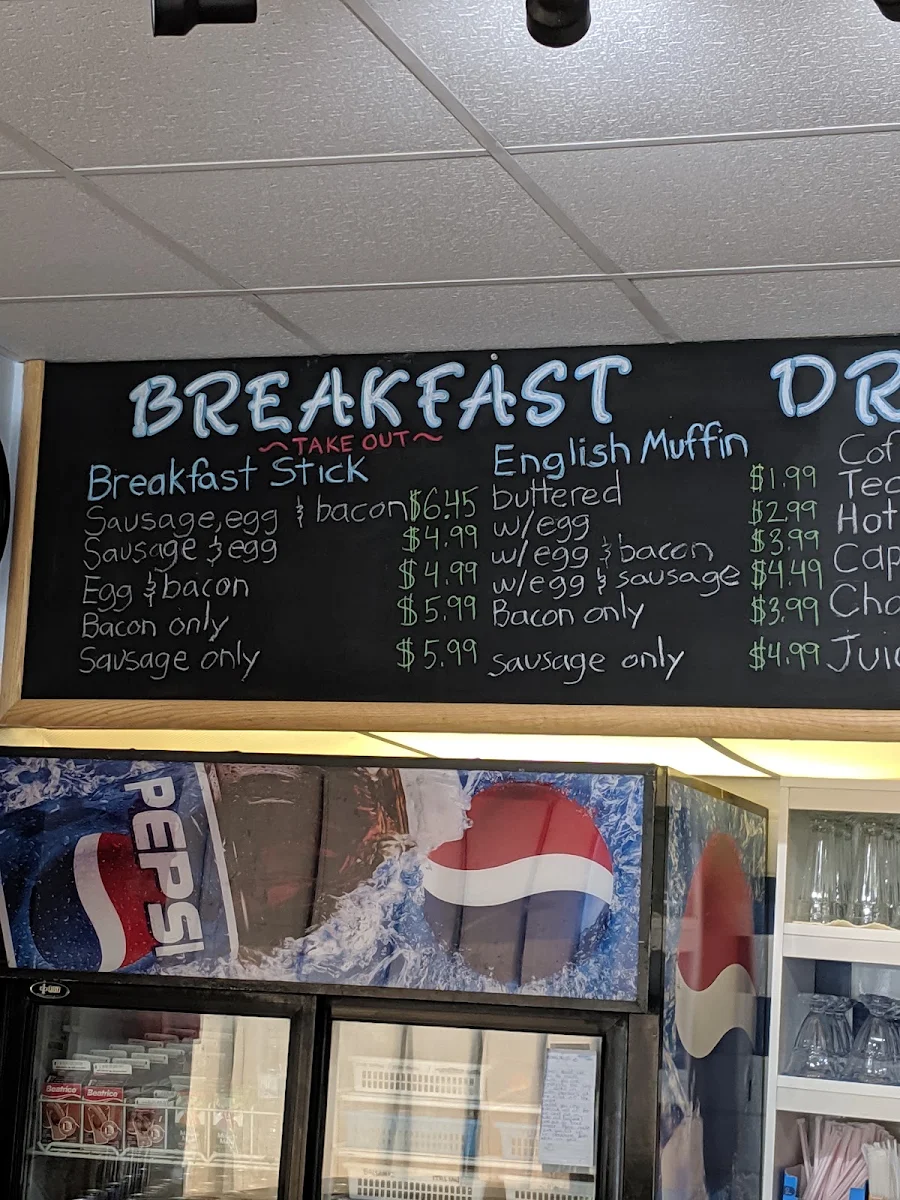 BREAKFAST
~TAKE OUT~
Breakfast Stick
Sausage, egg & bacon $6.45
Sausage & egg $4.99
Egg & bacon $4.99
Bacon only $5.99
Sausage only $5.99
English Muffin
buttered $1.99
w/egg $2.99
w/egg & bacon $3.99
w/egg & sausage $4.49
Bacon only $3.99
sausage only $4.99
DR
Cof
Tea
Hot
Cap
Cho
Juic
PEPSI
Beatrice
Beatrice